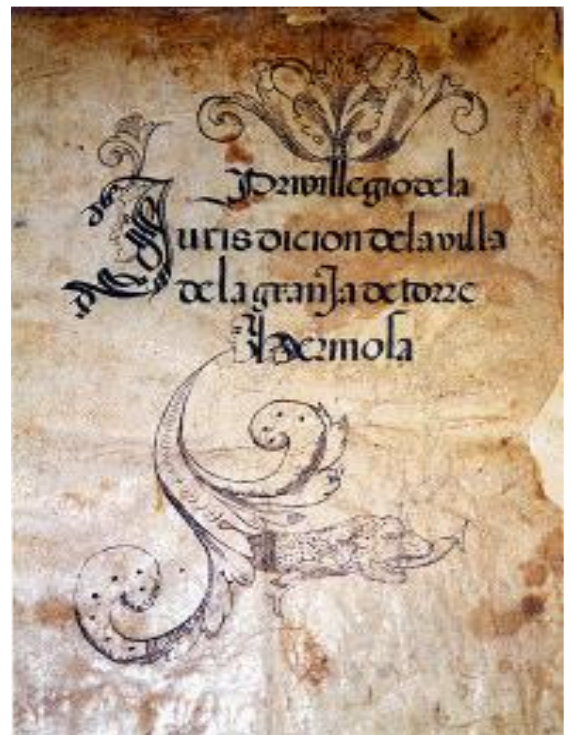 Privillegio de la
Jurisdicion de la villa
de la granJa de torre
Hermosa